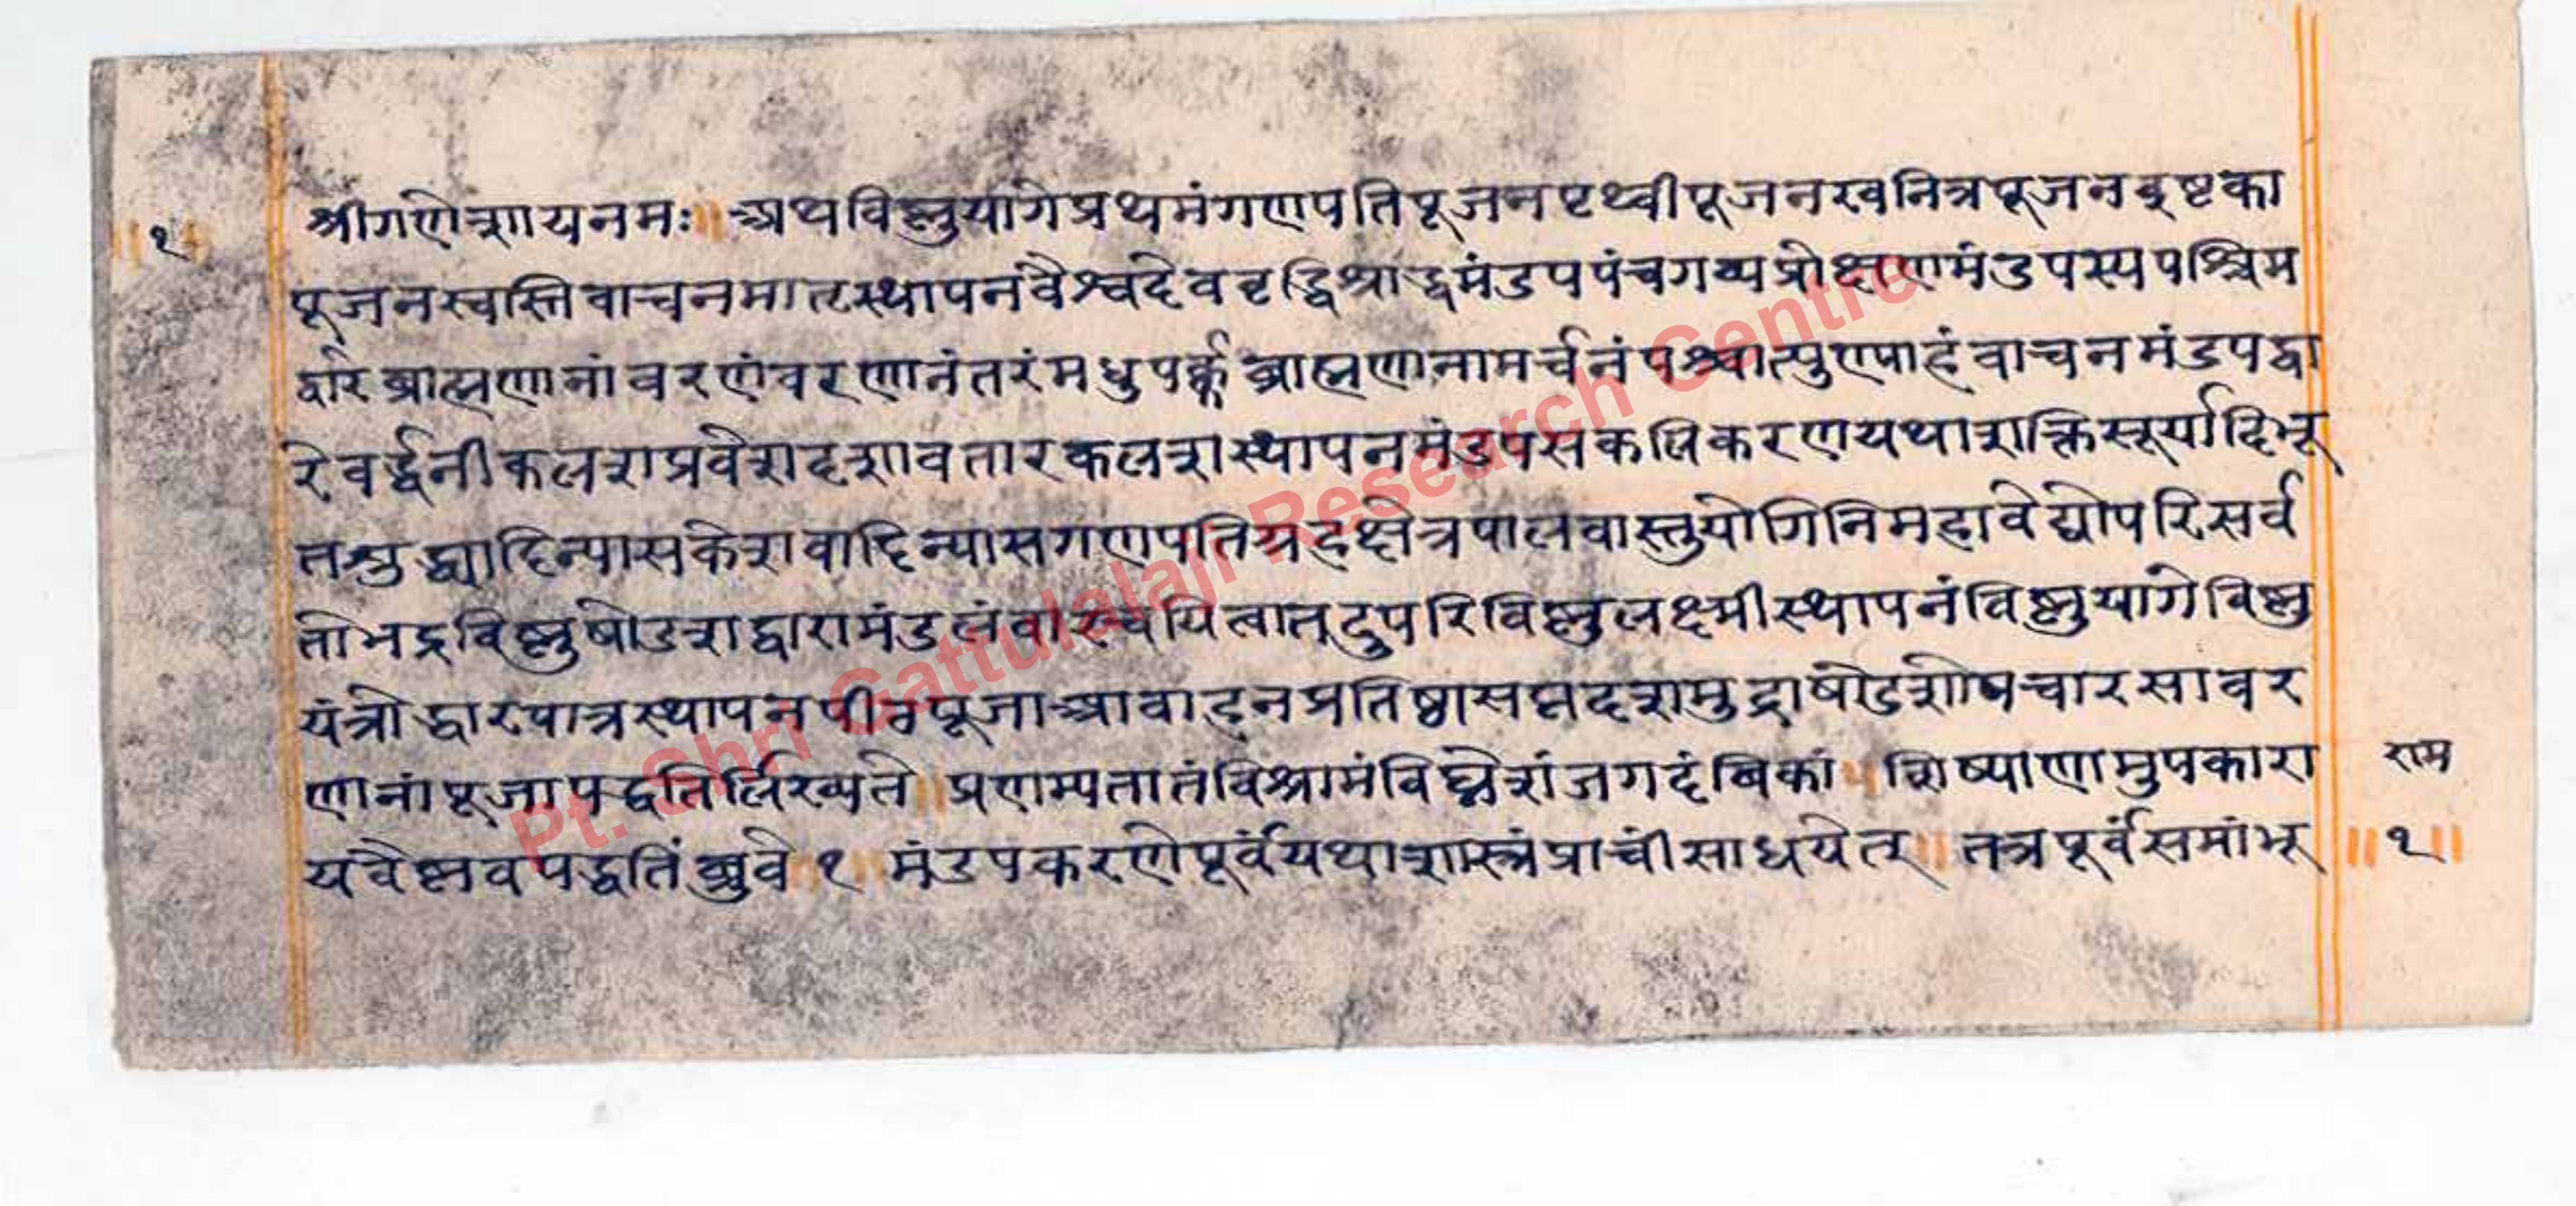 श्रीगणेशायनमः ॥ अथविष्णुयागेप्रथमंगणपतिपूजनपृथ्वीपूजनखनित्रपूजनइष्टका
पूजनस्वस्तिवाचनमातृस्थापनंवैश्वदेववृद्धिश्राद्धमंडपपंचगव्यप्रोक्षणमंडपस्यपश्चिम
द्वारेब्राह्मणानांवरणंवरणानंतरंमधुपर्क्कब्राह्मणानामर्चनंपश्चात्पुण्याहंवाचनमंडपद्वा
रेवर्द्धनीकलशप्रवेशदशावतारकलशस्थापनमंडपसकलिकरणयथाशक्तिसूर्यादिभू
तशुद्ध्यादिन्यासकेशवादिन्यासगणपतिग्रहक्षेत्रपालवास्तुयोगिनिमहावेद्योपरिसर्व
तोभद्रविष्णुषोडशद्वारामंडलंवारचयित्वातदुपरिविष्णुलक्ष्मीस्थापनंविष्णुयागेविष्णु
यंत्रोद्धारपात्रस्थापनपीठपूजाआवाहनप्रतिष्ठासप्तदशमुद्राषोडशोपचारसावर
णानांपूजापद्धतिर्लिख्यते ॥ प्रणम्यतातंविश्रामंविघ्नेशंजगदंबिकां । शिष्याणामुपकारा
यवैष्णवपद्धतिंब्रुवे १ ॥ मंडपकरणेपूर्वंयथाशास्त्रंप्राचींसाधयेत् ॥ तत्रपूर्वंसमांभू
॥ १ ॥
राम
॥ १ ॥
Pt. Shri Gattulalaji Research Centre